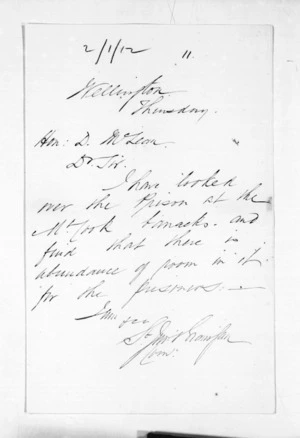 2/1/12 11.
Wellington
Thursday.
Hon: D. McLean
Dr Sir.
I have looked
over the Prison at the
Mt Cook barracks. and
find that there is
abundance of room in it
for the prisoners. —
I am &c